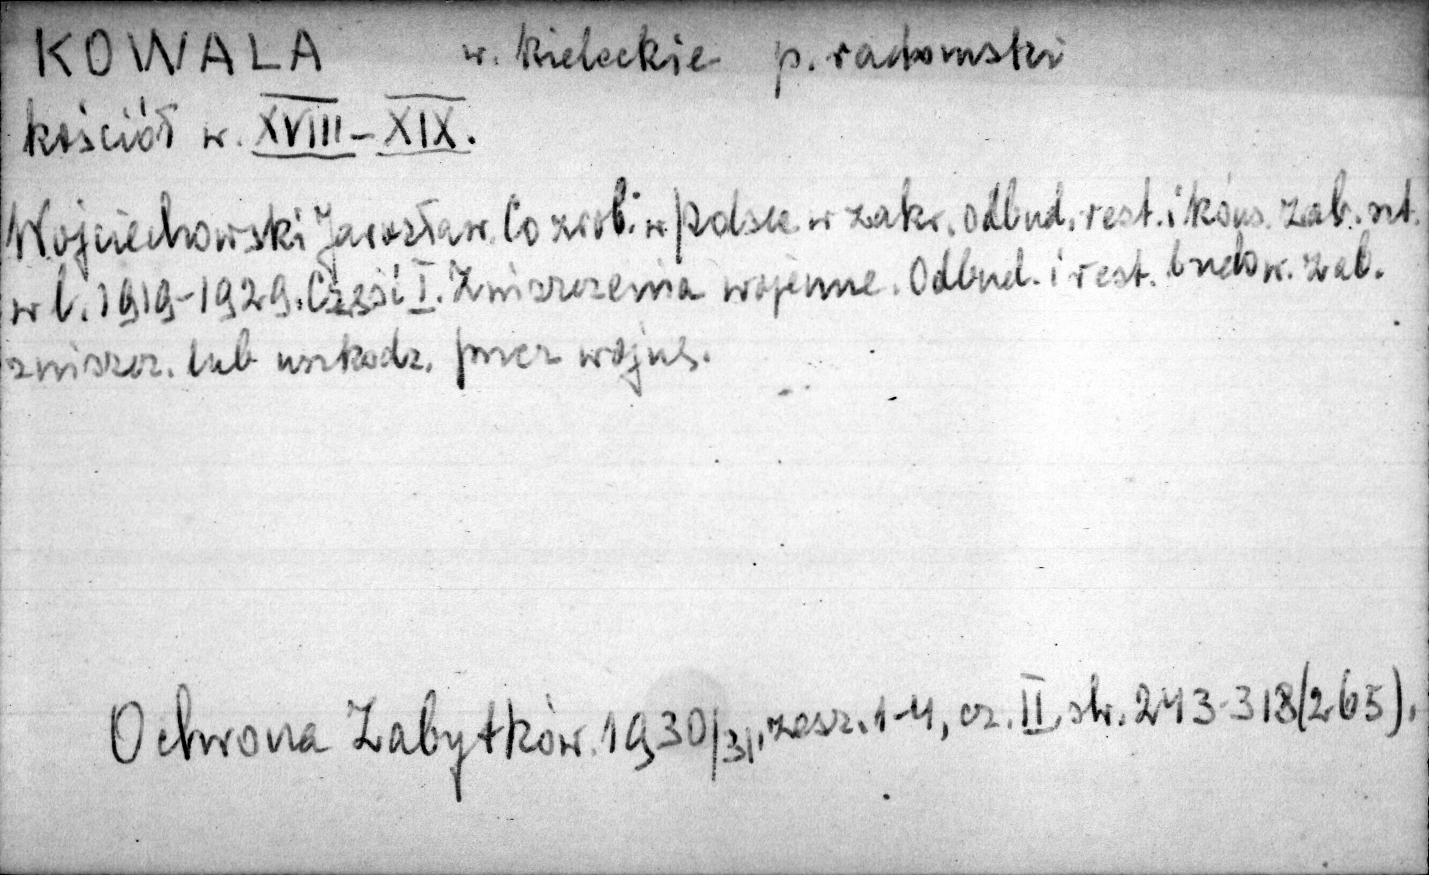 KOWALA w. kieleckie p. radomski
kościół w. XVIII-XIX.
Wojciechowski Jarosław. Co zrob. w Polsce w zakr. odbud. rest. i kons. zab. szt.
w l. 1919-1929. Część I. Zniszczenia wojenne. Odbud. i rest. budow. zab.
zniszcz. lub uszkodz. przez wojnę.
Ochrona Zabytków. 1930/31, zesz. 1-4, cz. II, str. 243-318 (265).